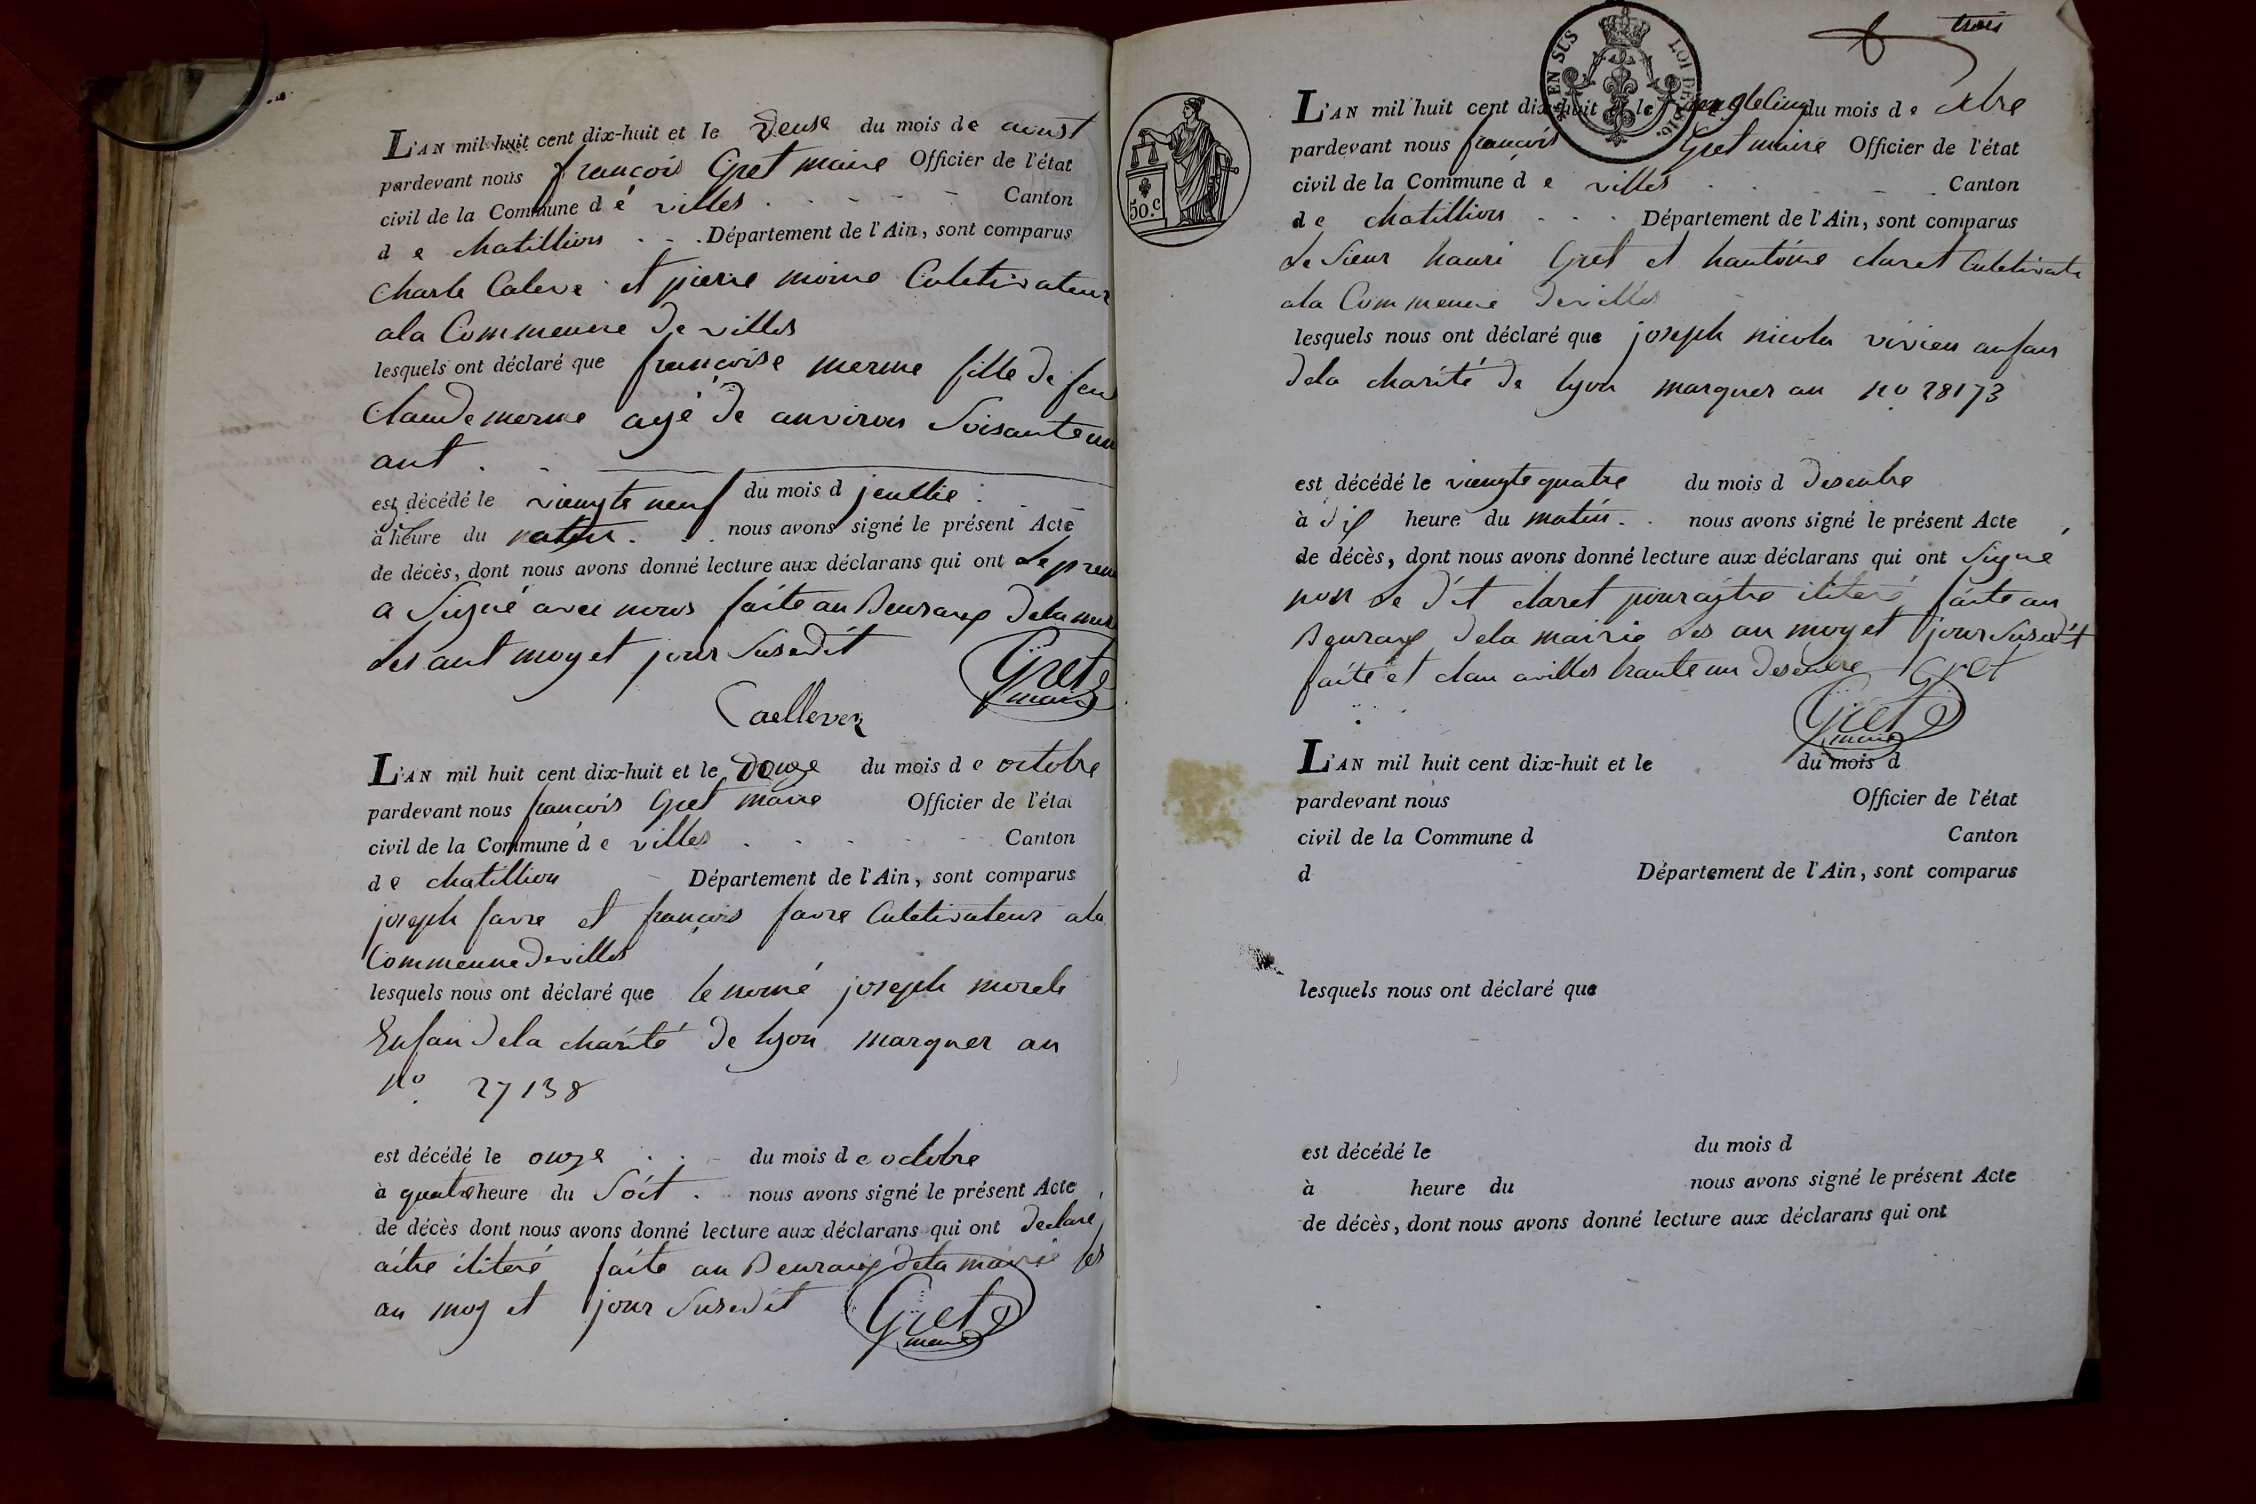 L'AN mil huit cent dix-huit et le deuse du mois de aoust
pardevant nous françois Gret maire Officier de l'état
civil de la Commune d é villes Canton
d e chatillion Département de l'Ain, sont comparus
Charle Caleve et pierre moine Culetivateur
ala Commeune de villes
lesquels ont déclaré que françoise merme fille de feu
Claude merme agé de anviron Soisante un
ant
est décédé le viengte neuf du mois d jeullie
à heure du matin nous avons signé le présent Acte
de décès, dont nous avons donné lecture aux déclarans qui ont Le
a Signé avec nous faite au Beuraux dela
les ant moy et jour Susedit Gret
maire
Caellever
L'AN mil huit cent dix-huit et le douze du mois d e octobre
pardevant nous françois Gret maire Officier de l'état
civil de la Commune d e villes Canton
d e chatillion Département de l'Ain, sont comparus
joseph favre et françois favre Culetivateur ala
Commeunne de villes
lesquels nous ont déclaré que le nomé joseph morele
Enfan dela charité de lyon marquer au
No 27138
est décédé le onze du mois d e octobre
à quatre heure du Soit nous avons signé le présent Acte
de décès dont nous avons donné lecture aux déclarans qui ont declaré
aitre iliteré faite au Beuraux dela mairie les
an moy et jour Susedit Gret
maire
trois
EN SUS LOI DE 1816.
50.c
L'AN mil huit cent dix-huit et le du mois d e Xbre
pardevant nous françois Gret maire Officier de l'état
civil de la Commune d e villes Canton
d e chatillion Département de l'Ain, sont comparus
Le Sieur hanri Gret et hantoine claret Culetivate
ala Commeune de villes
lesquels nous ont déclaré que joseph nicola vivien anfan
dela charité de lyon marquer au no 28173
est décédé le viengte quatre du mois d desenbre
à dix heure du matin nous avons signé le présent Acte
de décès, dont nous avons donné lecture aux déclarans qui ont Signé
non Le dit claret pour aitre iliteré faite au
Beuraux dela mairie les an moy et jour Susedit
faite et clau a villes trante un desenbre Gret
Gret
maire
L'AN mil huit cent dix-huit et le du mois d
pardevant nous Officier de l'état
civil de la Commune d Canton
d Département de l'Ain, sont comparus
lesquels nous ont déclaré que
est décédé le du mois d
à heure du nous avons signé le présent Acte
de décès, dont nous avons donné lecture aux déclarans qui ont